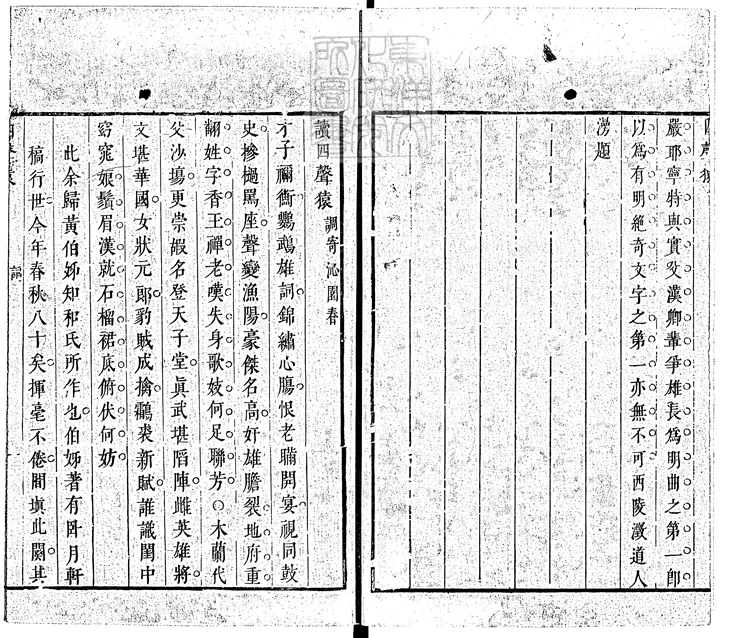 嚴耶寧特與實父漢卿輩爭雄長為明曲之第一卽
以為有明絕奇文字之第一亦無不可西陵澂道人
漫題
讀四聲猿 調寄沁園春
才子禰衡鸚鵡雄詞錦繡心膓恨老瞞開宴視同鼓
史摻撾罵座聲變漁陽豪傑名高奸雄膽裂地府重
翻姓字香玉禪老嘆失身歌妓何足聯芳○木蘭代
父沙塲更崇嘏名登天子堂眞武堪陷陣雌英雄將
文堪華國女狀元郎豹賊成擒鸘裘新賦誰識閨中
窈窕娘鬚眉漢就石榴裙底俯伏何妨
此余歸黃伯姊知和氏所作也伯姊著有臥月軒
稿行世今年春秋八十矣揮毫不倦閒塡此闋其